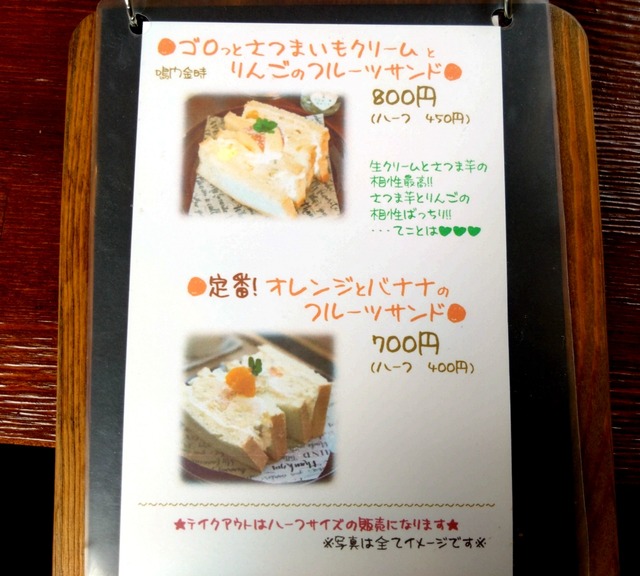 ●ゴロっとさつまいもクリームと
鳴門金時 りんごのフルーツサンド●
800円
(ハーフ 450円)
生クリームとさつま芋の
相性最高!!
さつま芋とりんごの
相性ばっちり!!
・・・てことは♥♥♥
●定番!オレンジとバナナの
フルーツサンド●
700円
(ハーフ 400円)
★テイクアウトはハーフサイズの販売になります★
※写真は全てイメージです※